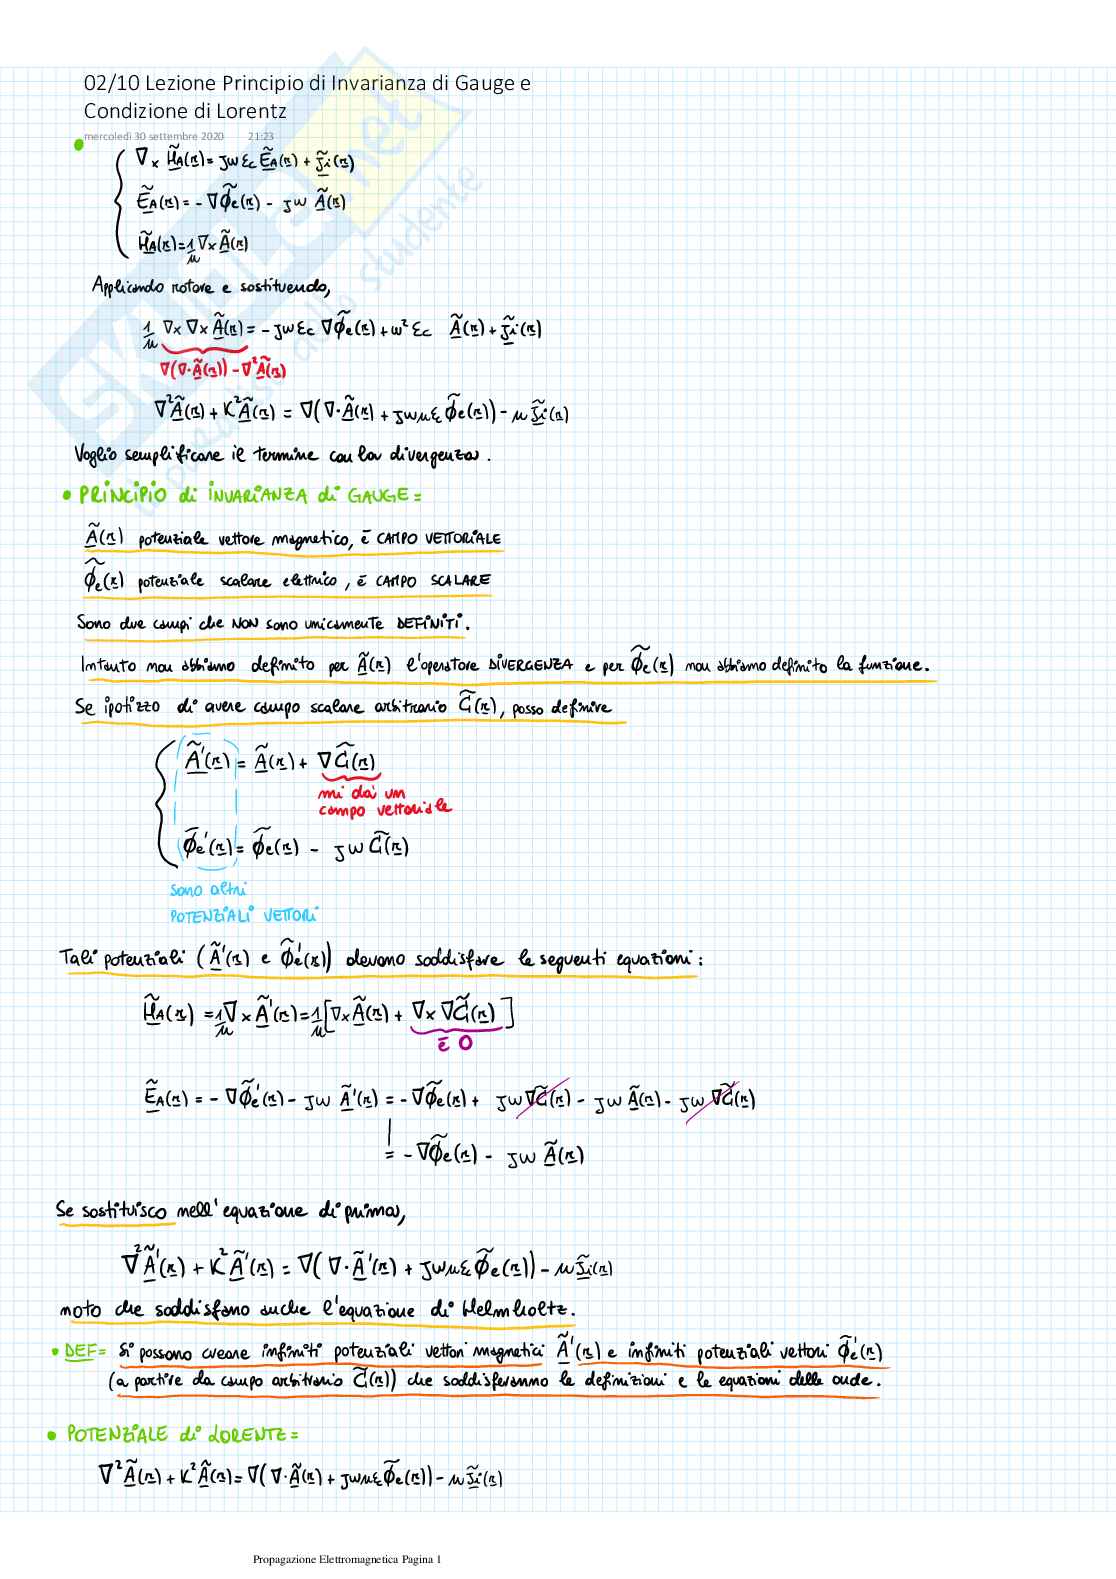 02/10 Lezione Principio di Invarianza di Gauge e
Condizione di Lorentz
mercoledì 30 settembre 2020 21:23
∇ × H̃_A(r) = jω ε_c Ẽ_A(r) + j̃_i(r)
Ẽ_A(r) = - ∇Φ̃e(r) - jω Ã(r)
H̃_A(r) = 1/μ ∇× Ã(r)
Applicando rotore e sostituendo,
1/μ ∇× ∇× Ã(r) = - jω ε_c ∇Φ̃e(r) + ω² ε_c Ã(r) + j̃_i(r)
∇(∇·Ã(r)) - ∇²Ã(r)
∇²Ã(r) + K²Ã(r) = ∇(∇·Ã(r) + jωμε_c Φ̃e(r)) - μ J̃_i(r)
Voglio semplificare il termine con la divergenza.
• PRINCIPIO di INVARIANZA di GAUGE =
Ã(r) potenziale vettore magnetico, è CAMPO VETTORIALE
Φ̃e(r) potenziale scalare elettrico, è CAMPO SCALARE
Sono due campi che NON sono unicamente DEFINITI.
Intanto non abbiamo definito per Ã(r) l'operatore DIVERGENZA e per Φ̃e(r) non abbiamo definito la funzione.
Se ipotizzo di avere campo scalare arbitrario G̃(r), posso definire
Ã'(r) = Ã(r) + ∇G̃(r)
mi dà un
campo vettoriale
Φ̃e'(r) = Φ̃e(r) - jω G̃(r)
sono altri
POTENZIALI VETTORI
Tali potenziali (Ã'(r) e Φ̃e'(r)) devono soddisfare le seguenti equazioni:
H̃_A(r) = 1/μ ∇× Ã'(r) = 1/μ [∇×Ã(r) + ∇× ∇G̃(r)]
è 0
Ẽ_A(r) = - ∇Φ̃e'(r) - jω Ã'(r) = - ∇Φ̃e(r) + jω∇G̃(r) - jω Ã(r) - jω ∇G̃(r)
= - ∇Φ̃e(r) - jω Ã(r)
Se sostituisco nell'equazione di prima,
∇²Ã'(r) + K²Ã'(r) = ∇(∇·Ã'(r) + jωμε_c Φ̃e(r)) - μ J̃_i(r)
noto che soddisfano anche l'equazione di Helmholtz.
• DEF = Si possono creare infiniti potenziali vettori magnetici Ã'(r) e infiniti potenziali vettori Φ̃e'(r)
(a partire da campo arbitrario G̃(r)) che soddisferanno le definizioni e le equazioni delle onde.
• POTENZIALE di LORENTZ =
∇²Ã(r) + K²Ã(r) = ∇(∇·Ã(r) + jωμε_c Φ̃e(r)) - μ J̃_i(r)
Propagazione Elettromagnetica Pagina 1